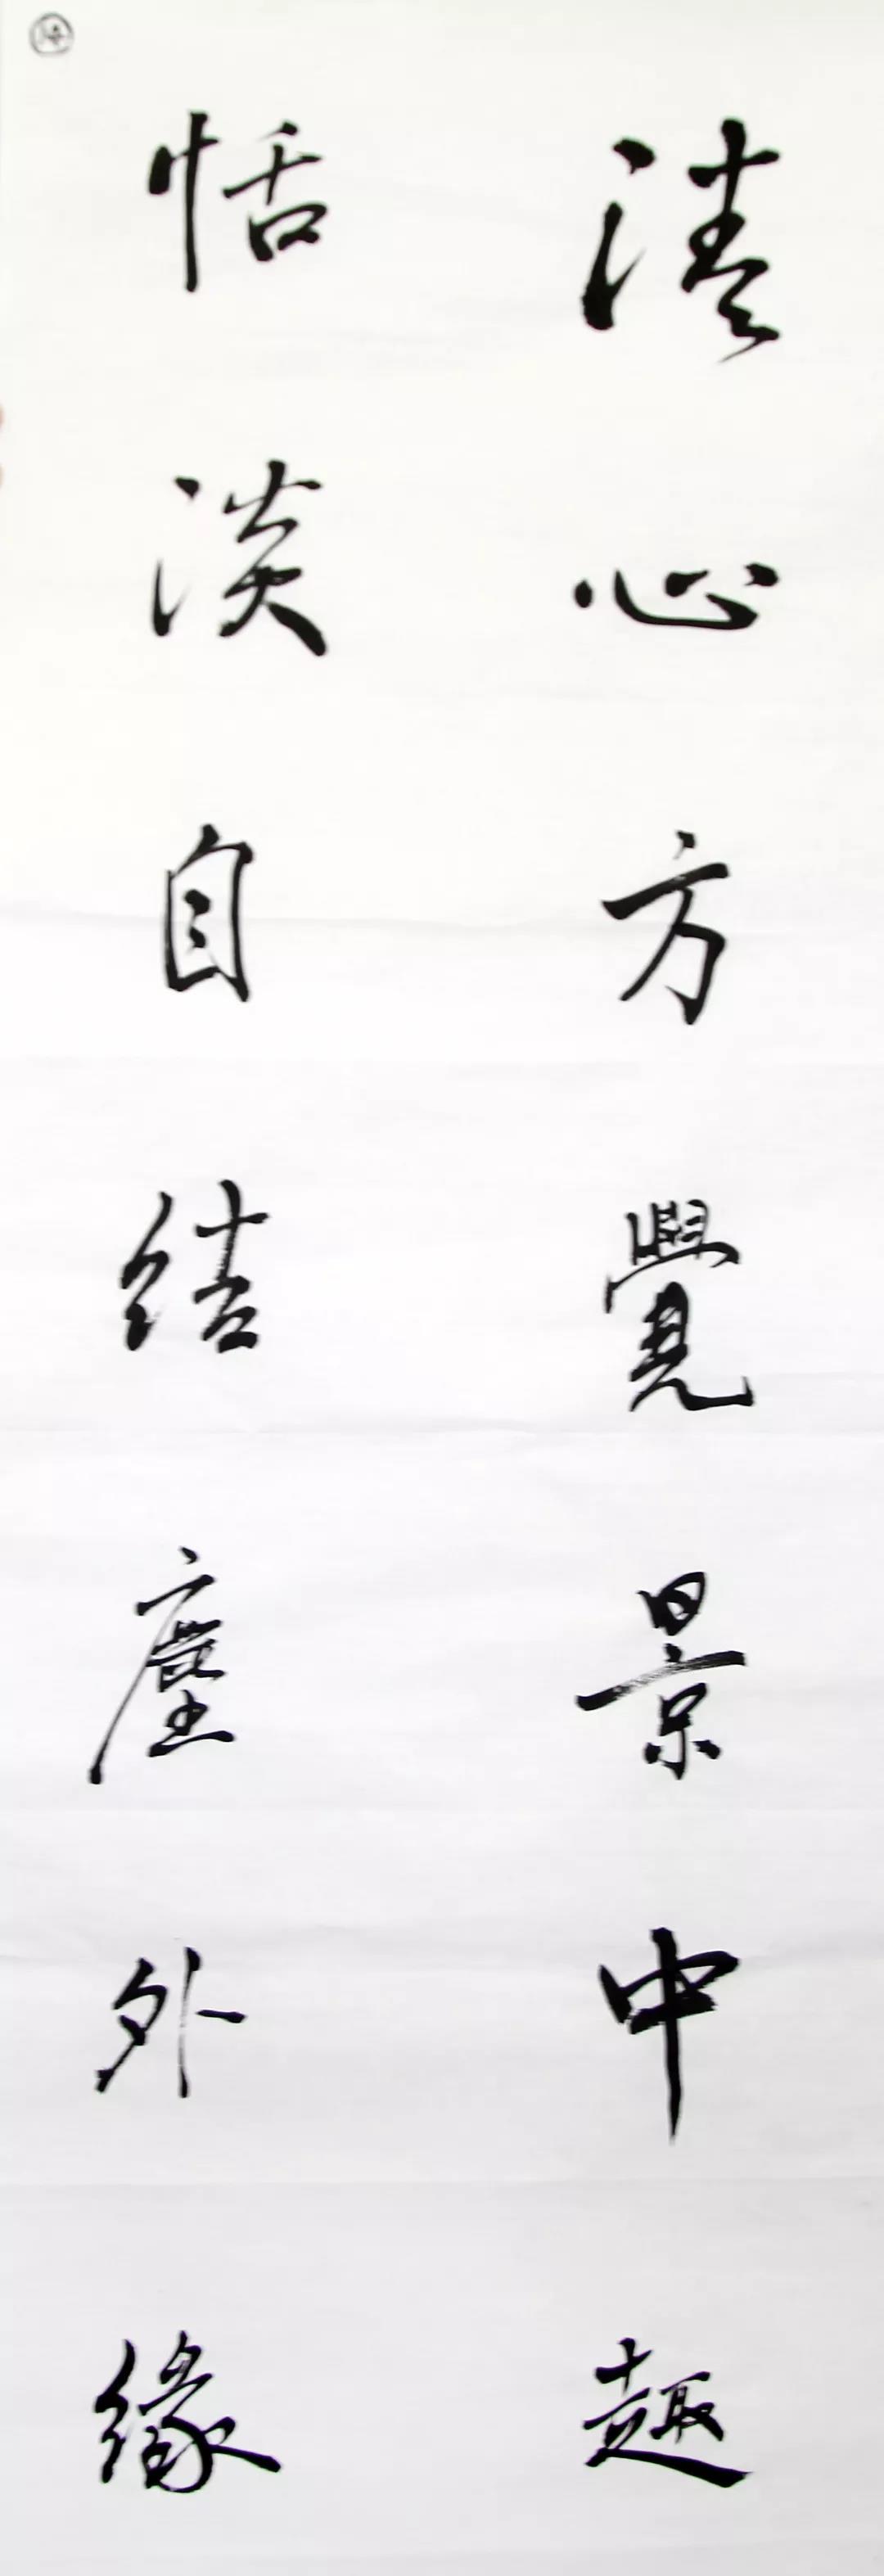 清心方覺景中趣
恬淡自結塵外緣